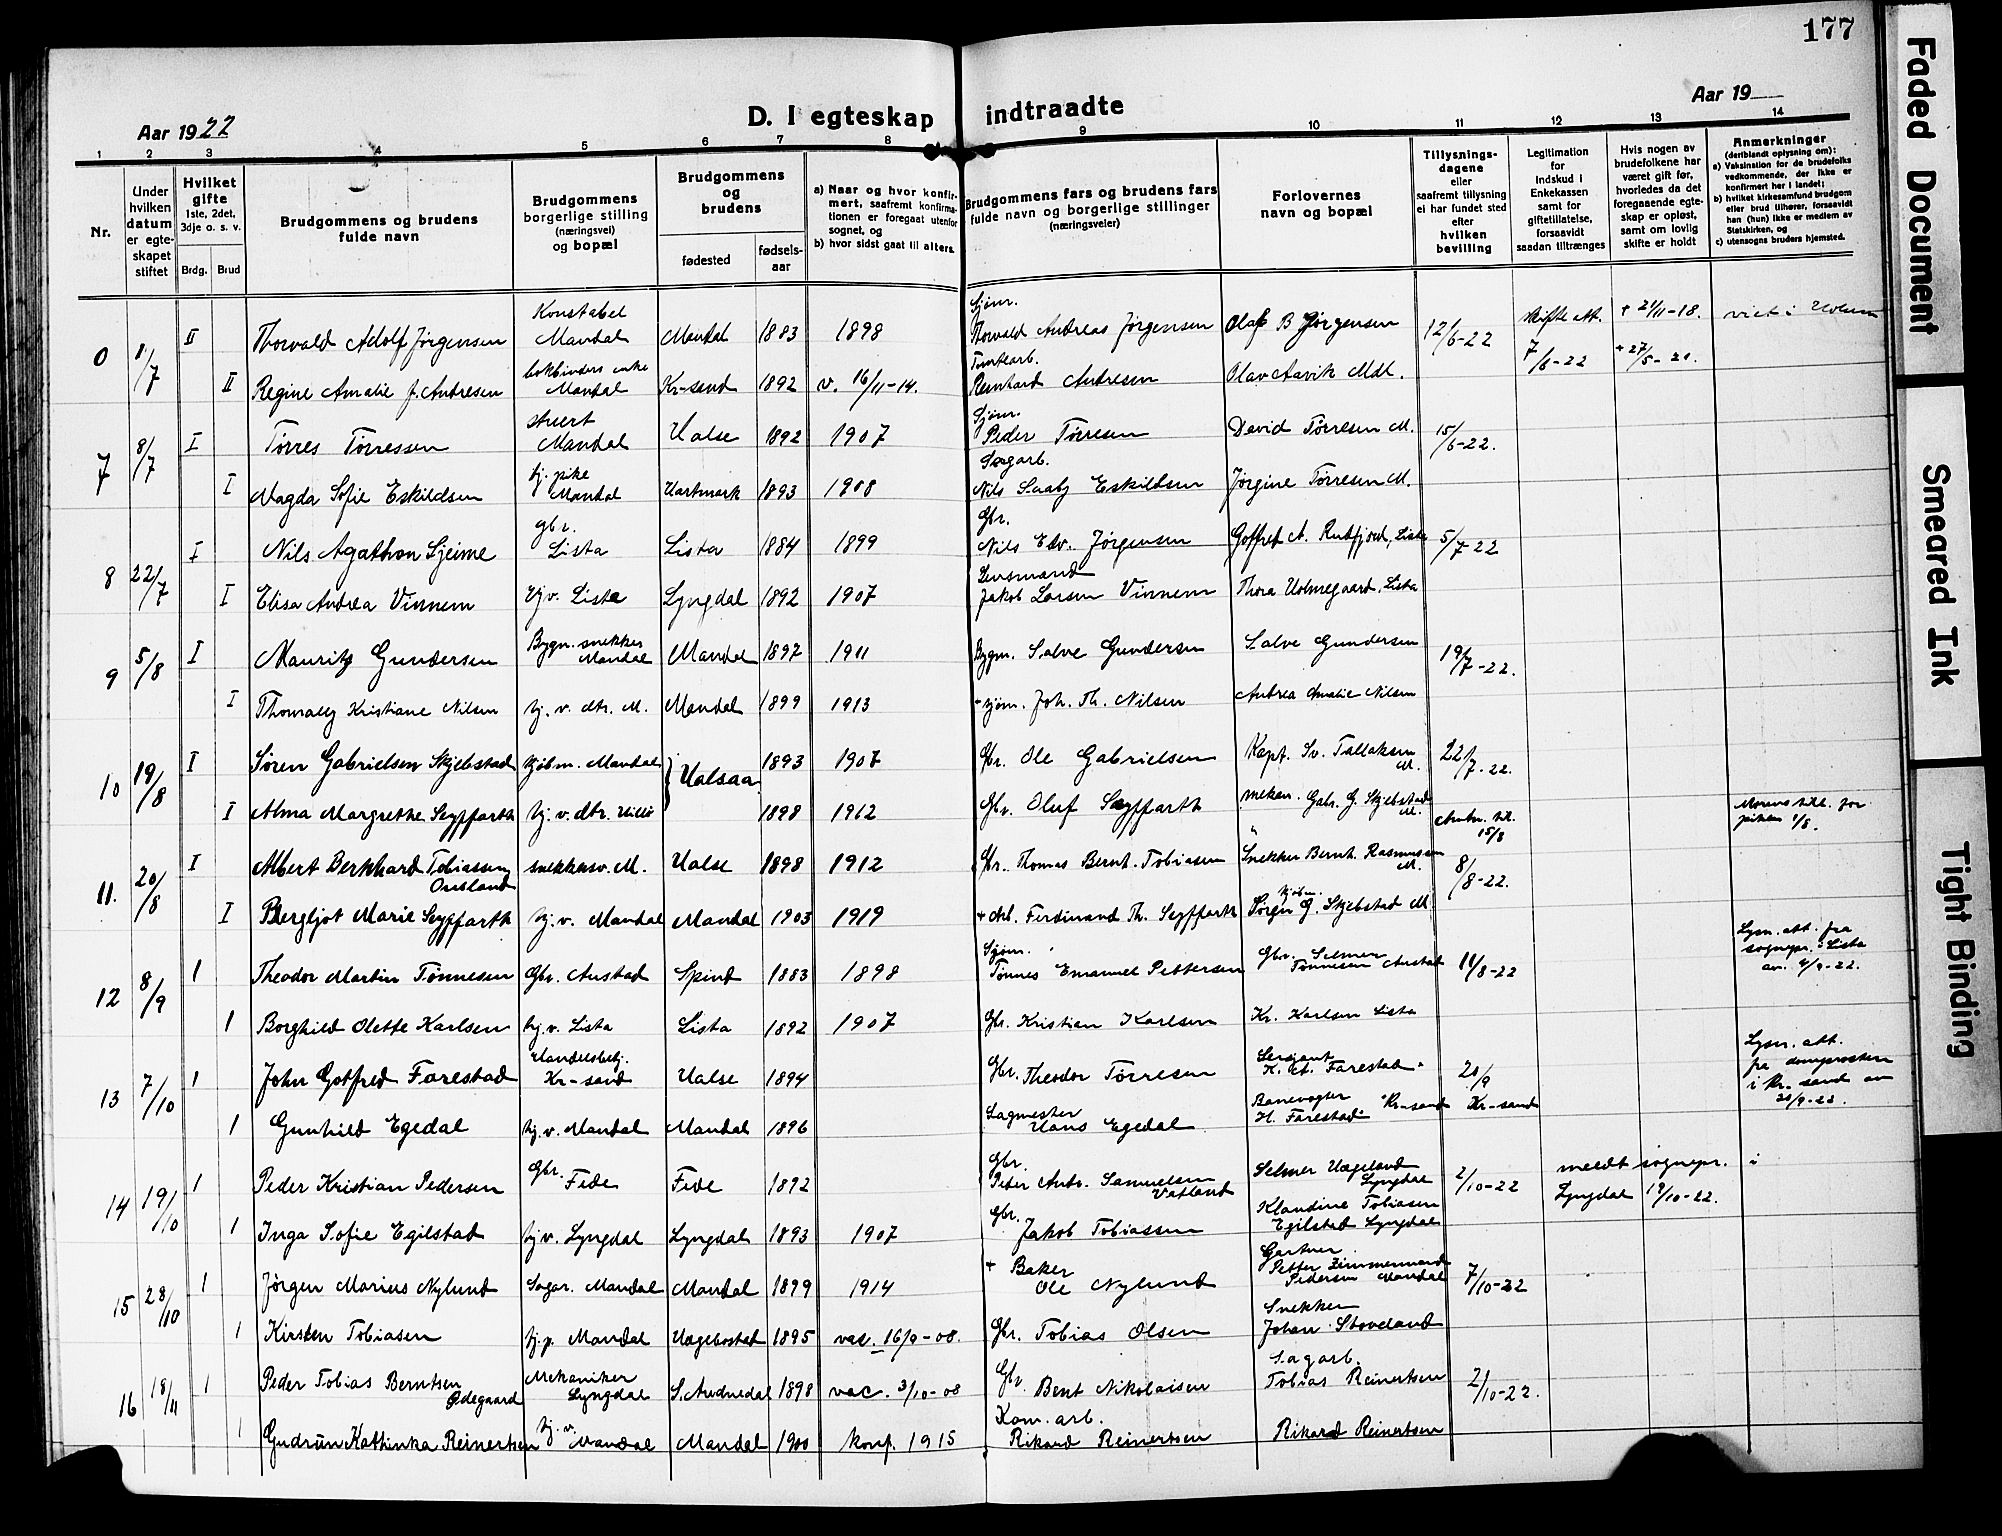 177
Aar 1922
D. I egteskap indtraadte
Aar 19
1 2 3 4 5 6 7 8 9 10 11 12 13 14
Nr.
Under hvilken datum er egte-skapet stiftet
Hvilket gifte
1ste, 2det, 3dje o. s. v.
Brdg. Brud
Brudgommens og brudens fulde navn
Brudgommens borgerlige stilling (næringsvei) og bopæl
Brudgommens og brudens
fødested
fødsels-aar
a) Naar og hvor konfir-mert, saafremt konfirma-tionen er foregaat utenfor sognet, og
b) hvor sidst gaat til alters.
Brudgommens fars og brudens fars fulde navn og borgerlige stillinger (næringsveier)
Forlovernes navn og bopæl
Tillysnings-dagene eller saafremt tillysning ei har fundet sted efter hvilken bevilling
Legitimation for Indskud i Enkekassen samt for giftetillatelse, forsaavidt saadan tiltrænges
Hvis nogen av brudefolkene har været gift før, hvorledes da det foregaaende egte-skap er opløst, samt om lovlig skifte er holdt
Anmerkninger
(deriblandt oplysning om):
a) Vaksination for de brudefolks vedkommende, der ikke er konfirmert her i landet;
b) hvilket kirkesamfund brudgom eller brud tilhører, forsaavidt han (hun) ikke er medlem av Statskirken, og
c) utensogns bruders hjemsted.
1/7 II Thorvald Adolf Jørgensen Konstabel Mandal Mandal 1883 1898 Sjøm. Thorvald Andreas Jørgensen Olaf B Jørgensen 12/6-22 skifte att. 7/6-22 + 21/11-18. viet i
II Regine Amalie f. Andresen bokbinders enke Mandal Kr-sand 1892 v. 16/11-14. Reinhard Andresen Olav Aavik Mdl. + 27/5-20.
7 8/7 I Tørres Tørressen Mandal Ualse 1892 1907 Sjøm. Peder Tørresen David Tørresen M. 15/6-22.
I Magda Sofie Eskildsen hj. pike Mandal Hartmark 1893 1908 Sagarb. Nils Saaby Eskildsen Jørgine Tørresen M.
8 22/7 I Nils Agathon Sjeime gbr. Lista Lista 1884 1899 Gbr. Nils Edv. Jørgensen Gotfred A. Rudfjord, Lista 5/7-22
I Elisa Andrea Vinnem hj v. Lista Lyngdal 1892 1907 Lensmand Jakob Larsen Vinnem Thora Holmegaard, Lista
9 5/8 I Mauritz Gundersen Bygn. snekker Mandal Mandal 1897 1911 Bygm. Salve Gundersen Salve Gundersen 19/7-22.
I Thomally Kristiane Nilsen hj. v. dtr. M. Mandal 1899 1913 sjøm. Joh. Th. Nilsen Andrea Amalie Nilsen
10 19/8 I Søren Gabrielsen Skjebstad kjøbm. Mandal Ualsaa 1893 1907 Gbr. Ole Gabrielsen Kapt. Sv. Tallaksen M. 22/7-22.
I Alma Margrethe Seyffarth hj. v. dtr. 1898 1912 Gbr. Oluf Seyffarth mekan. Gabr. G. Skjebstad M. 15/8 Morens till. for piken 1/8.
11. 20/8 I Albert Berkhard Tobiassen Ousland snekkersv. M. Ualse 1898 1912 Gbr. Thomas Bernt. Tobiasen Snekker Bernh. Rasmussen M. 8/8-22.
I Bergljot Marie Seyffarth hj. v. Mandal Mandal 1903 1919 + Arb. Ferdinand Th. Seyffarth kjøbm. Sørgen G. Skjebstad M.
12 8/9 1 Theodor Martin Tønnesen Gbr. Austad Spind 1883 1898 Sjøm. Tønnes Emanuel Pettersen Gbr. Selmer Tønnesen Austad 11/8-22 Lysn. att. fra sognepr. i Lista av. 4/9-22.
1 Borghild Olette Karlsen hj. v. Lista Lista 1892 1907 Gbr. Kristian Karlsen Kr. Karlsen Lista
13 7/10 1 John Gotfred Farestad Handelsbetj. Kr-sand Ualse 1894 Gbr. Theodor Tørresen Sersjant K. A. Farestad 20/9 Kr-sand Lysn. att. fra domprosten i Kr. sand av 20/9-22.
1 Gunhild Egedal hj. v. Mandal Mandal 1896 Sagmester Hans Egedal Banevogter H. Farestad Kr-sand
14 19/10 1 Peder Kristian Pedersen Gbr. Fide Fide 1892 Gbr. Peder Andr. Samuelsen Vatland Selmer Uægeland Lyngdal 2/10-22 meldt sognepr. i Lyngdal 19/10-22.
1 Inga Sofie Egilstad hj v. Lyngdal Lyngdal 1893 1907 Gbr. Jakob Tobiassen Klaudine Tobiasen Egilstad Lyngdal
15 28/10 1 Jørgen Marius Nylund Sagar. Mandal Mandal 1899 1914 + Baker Ole Nylund Gartner Petter Zimmermand Pedersen Mandal 7/10-22
1 Kirsten Tobiasen hj. p. Mandal Uægebostad 1895 vac. 16/9-08. Gbr. Tobias Olsen Snekker Johan Stoveland
16 18/11 1 Peder Tobias Berntsen Ødegaard Mekaniker Lyngdal S. Audnedal 1898 vac. 3/10-08 Gbr. Bent Nikolaisen Sagarb. Tobias Reinertsen 2/10-22.
1 Gudrun Kathinka Reinertsen hj. v. Mandal Mandal 1900 konf. 1915 Kom. arb. Rikard Reinertsen Rikard Reinertsen
Faded Document
Smeared Ink
Tight Binding